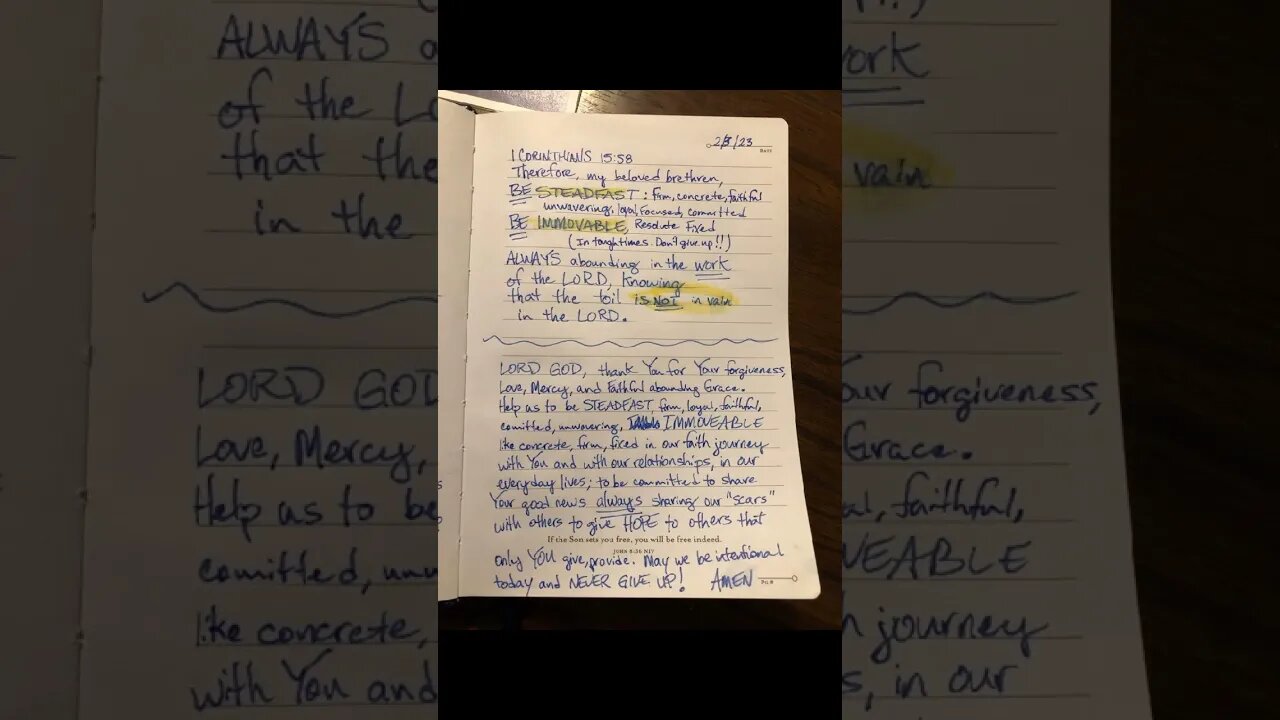 2/3/23
DATE
1 CORINTHIANS 15:58
Therefore, my beloved brethren,
BE STEADFAST: firm, concrete, faithful
unwavering, loyal, Focused, committed
BE IMMOVABLE, Resolute Fixed
(In tough times. Don't give up!!)
ALWAYS abounding in the work
of the LORD, knowing
that the toil is NOT in vain
in the LORD.
LORD GOD, thank You for Your forgiveness,
Love, Mercy, and Faithful abounding Grace.
Help us to be STEADFAST, firm, loyal, faithful,
comitted, unwavering, IMMOVEABLE
like concrete, firm, fixed in our faith journey
with You and with our relationships, in our
everyday lives; to be committed to share
Your good news always sharing our "scars"
with others to give HOPE to others that
If the Son sets you free, you will be free indeed.
JOHN 8:36 NIV
only YOU give, provide. May we be intentional
today and NEVER GIVE UP! AMEN
PG. 8